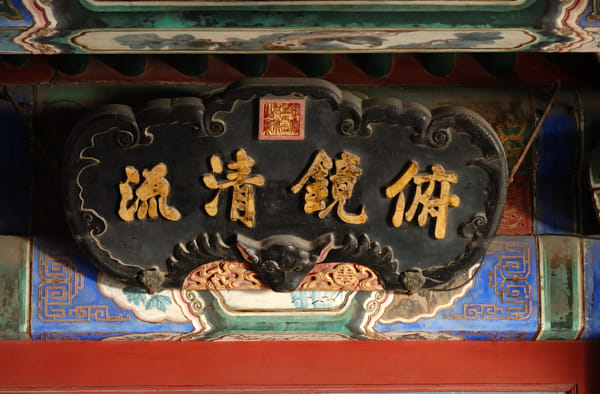 俯鏡清流